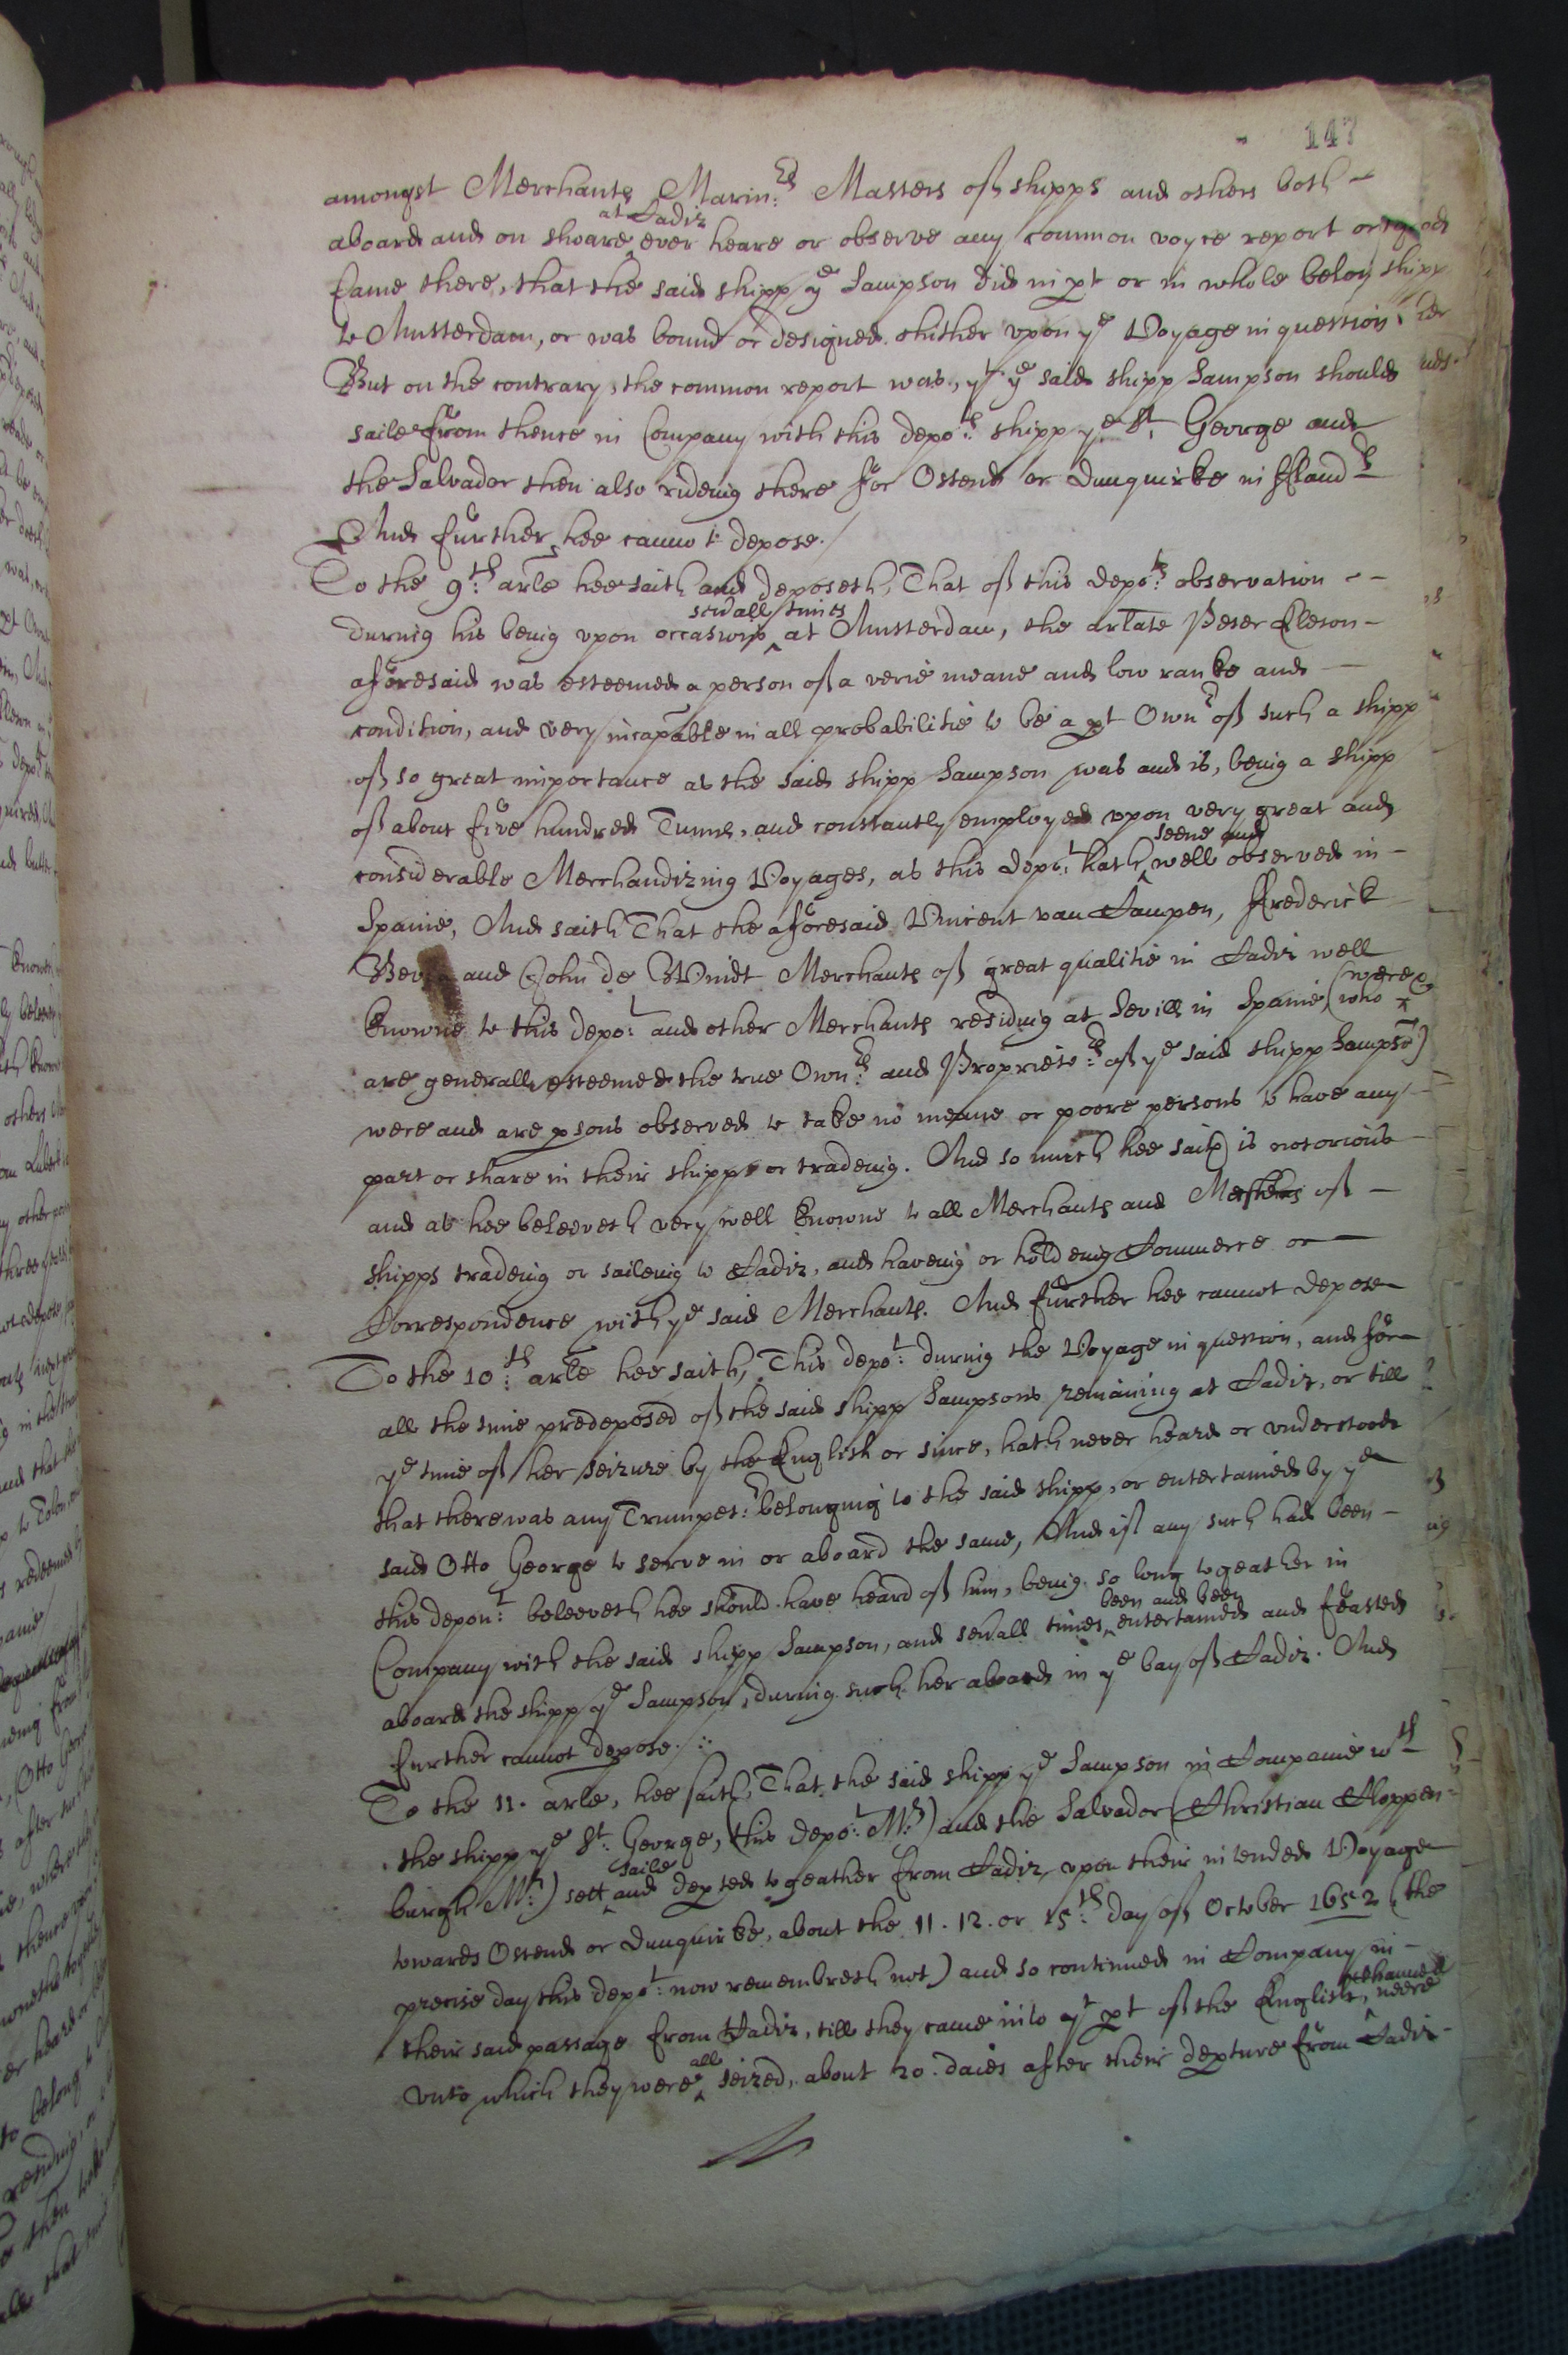 147
amongst Merchants Marin:rs Masters of shipps and others both -
aboard and on shoare ^at Cadiz ever heare or observe any common voyce report or
fame there, that the said shipp ye Sampson did in pt or in whole belong
to Amsterdam, or was bound or designed thither upon ye Voyage in question.
But on the contrary, the common report was, yt ye said shipp Sampson should
saile from thence in Company with this depo:ts shipp ye St. George and
the Salvador then also rideing there for Ostend or Dunquirke in ffland:rs
And further hee cannot depose./
To the 9:th arle hee saith and deposeth, That of this depo:ts observation - -
during his being upon occasions ^sevall times at Amsterdam, the arlate Peter Cleson -
aforesaid was esteemed a person of a verie meane and low ranke and -
condition, and very incapable in all probabilitie to be a pt Own:r of such a shipp
of so great importance as the said shipp Sampson was and is, being a shipp
of about five hundred Tunns, and constantly employed upon very great and
considerable Merchandizing Voyages, as this depo:t hath ^seene and well observed in -
Spaine, And saith That the aforesaid Vincent van Campen, ffrederick
and John de Windt Merchants of great qualitie in Cadiz well
knowne to this depo:t and other Merchants residing at Sevill in Spaine, (who ^were &
are generally esteemed the true Own:rs and Proprieto:rs of ye said shipp Sampson)
were and are psons observed to take no meane or poore persons to have any
part or share in their shipps or tradeing. And so much hee saith is notorious
and as hee beleeveth very well knowne to all Merchants and Masters of -
shipps tradeing or saileing to Cadiz, and haveing or holdeing Commerce or -
Correspondence with ye said Merchants. And further hee cannot depose
To the 10:th arle hee saith, This depo:t during the Voyage in question, and for
all the time predeposed of the said shipp Sampsons remaining at Cadiz, or till
ye time of her seizure by the English or since, hath never heard or understood
that there was any Trumpet:r belonging to the said shipp, or entertained by ye
said Otto George to serve in or aboard the same, And if any such had been -
this depon:t beleeveth hee should have heard of him, being so long togeather in
Company with the said shipp Sampson, and sevall times ^been and been entertained and feasted
aboard the shipp ye Sampson, during such her aboard in ye bay of Cadiz. And
further cannot depose./::
To the 11. arle, hee saith, That the said shipp ye Sampson in Companie wth
the shipp ye St. George, (this depo:t Mr) and the Salvador (Christian Cloppen=
burgh Mr) sett ^saile and depted togeather from Cadiz upon their intended Voyage
towards Ostend or Dunquirke, about the 11. 12. or 15:th day of October 1652 (the
precise day this depo:t now remembreth not) and so continued in Company in -
their said passage from Cadiz, till they came into yt pt of the English ^Channell, neere
unto which they were ^all seized, about 20. daies after their depture from Cadiz -